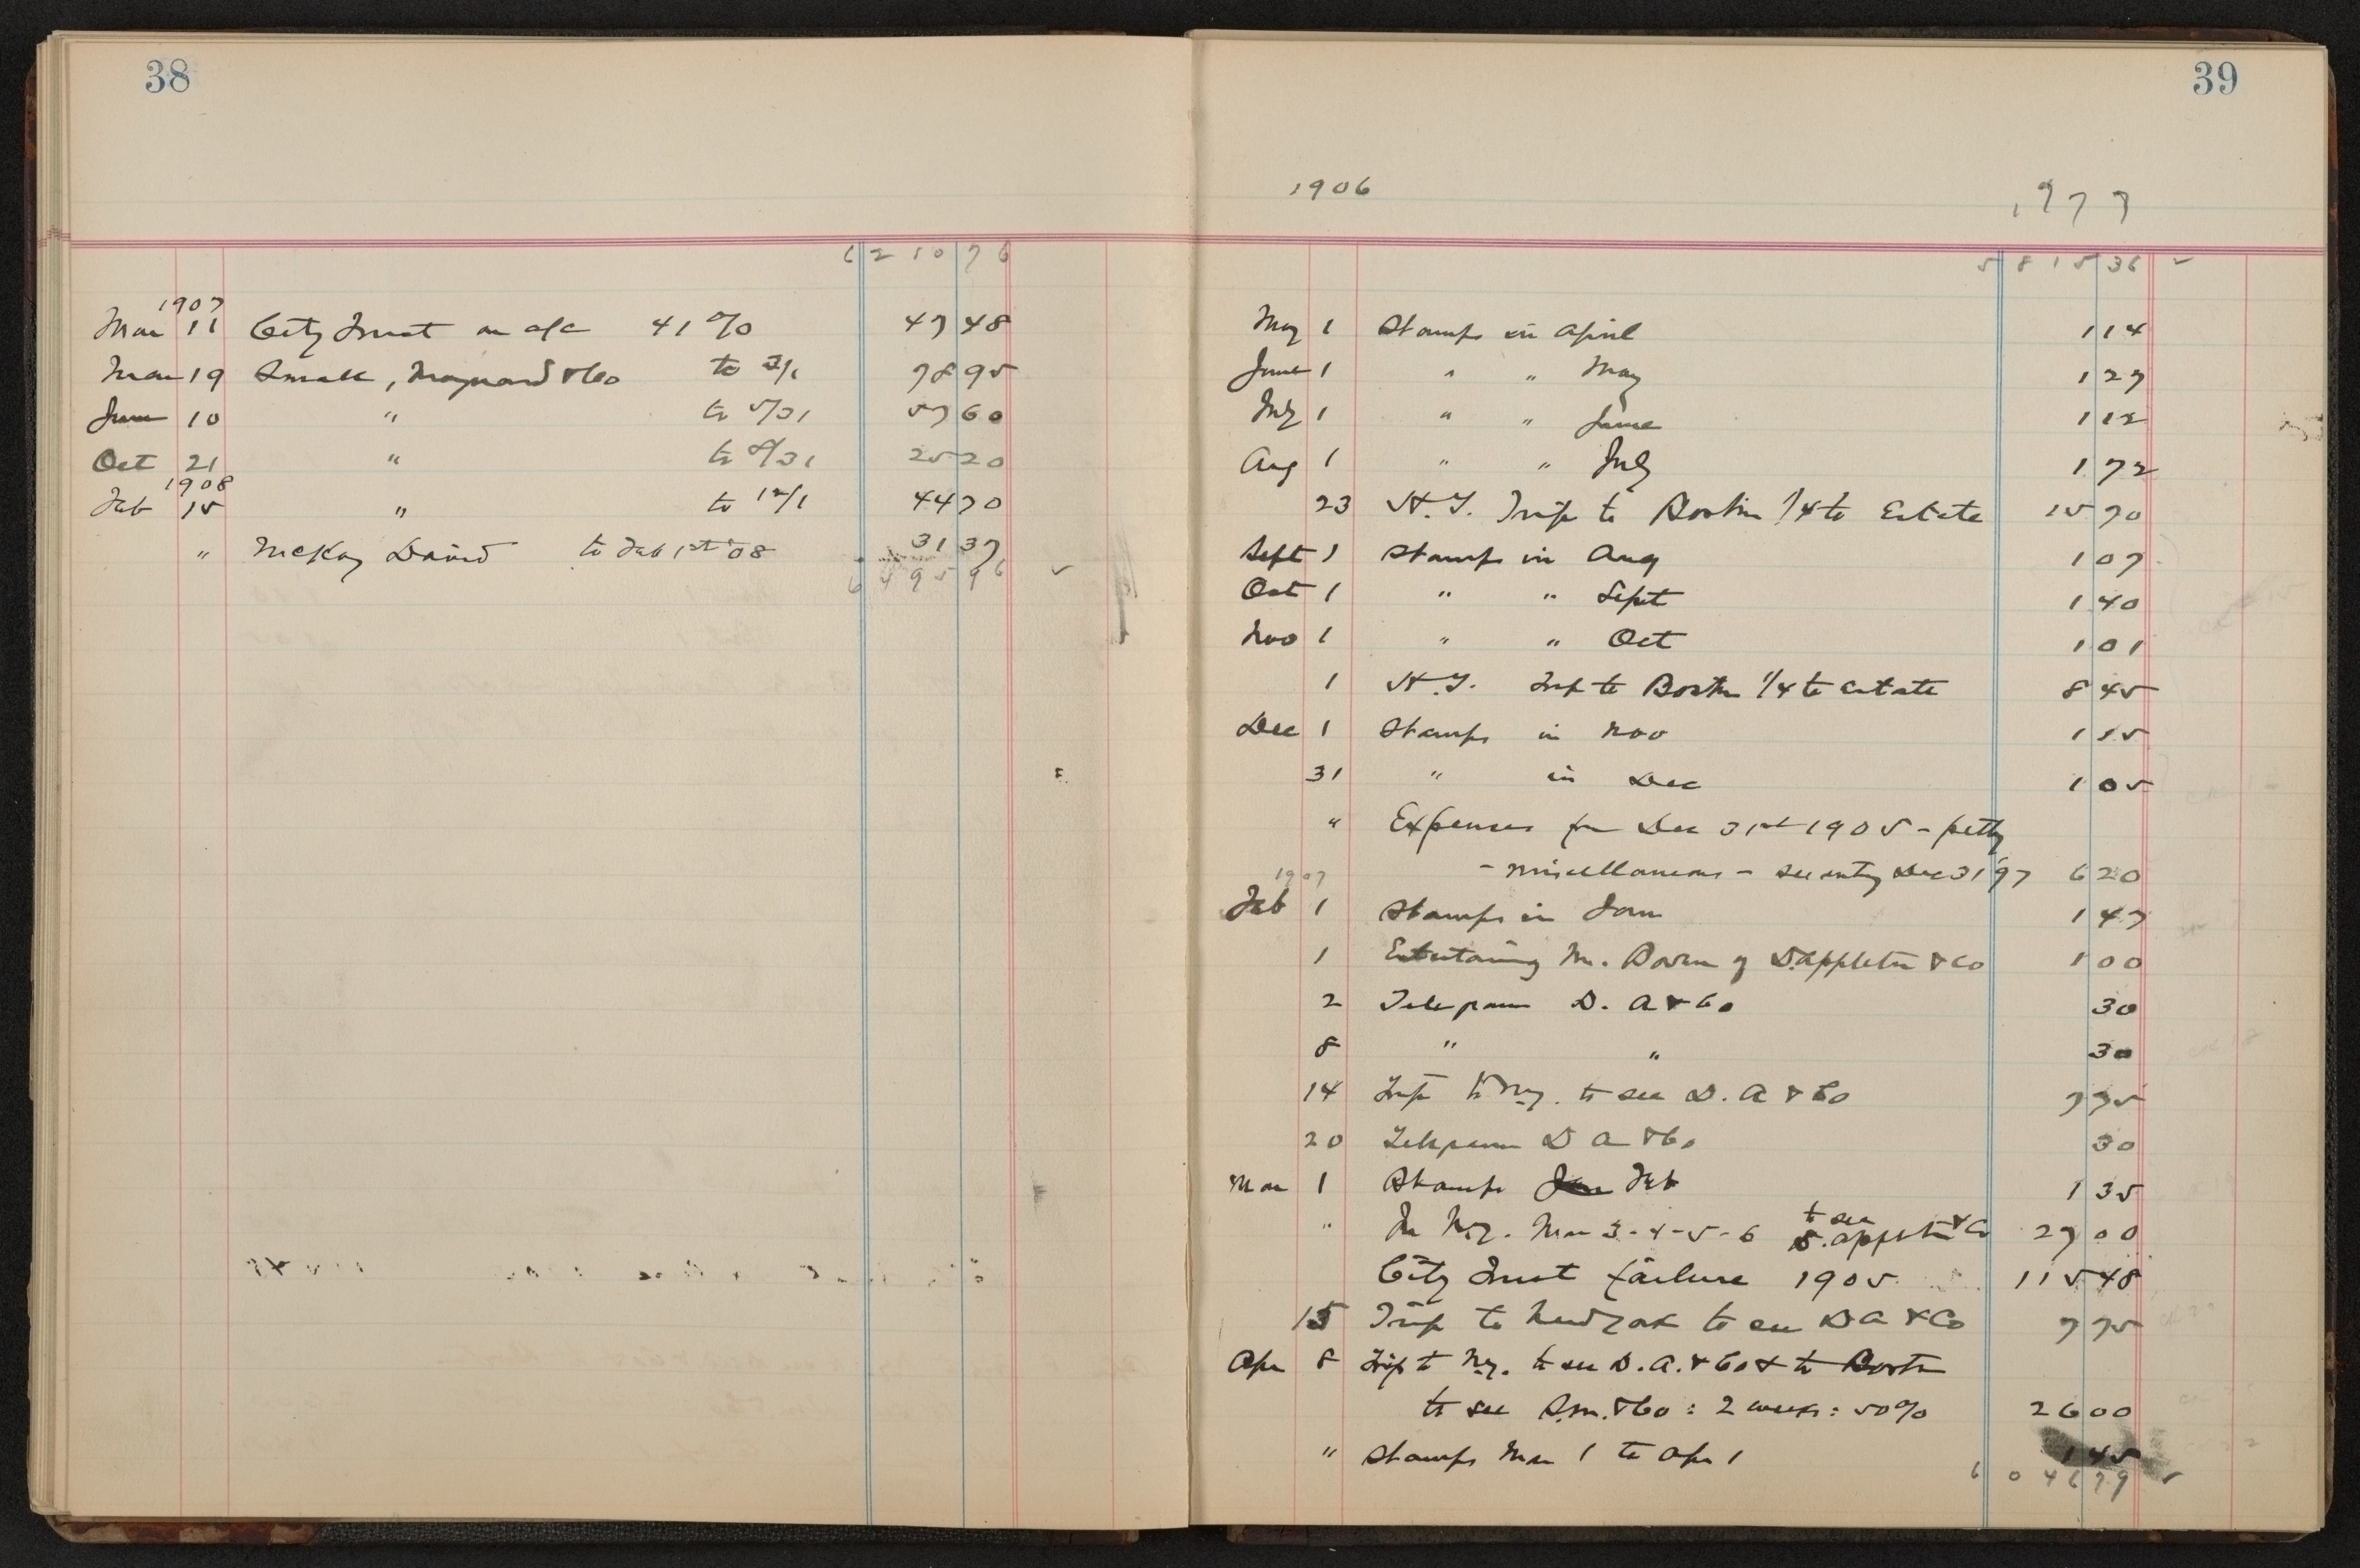 38
6210 76
1907
Mar 11 City Trust on a/c 41% 47 48
Mar 19 Small, Maynard & Co to 3/1 78 95
June 10 " to 5/31 57 60
Oct 21 " to 8/31 25 20
1908
Feb 15 " to 12/1 44 70
" McKay David to Feb 1st '08 31 37
6495 96 ✓
39
1906
1977
5815 36 ✓
May 1 Stamps in April 1 14
June 1 " " May 1 27
July 1 " " June 1 12
Aug 1 " " July 1 72
23 H.T. Trip to Boston 1/4 to Estate 15 70
Sept 1 Stamps in Aug 1 07
Oct 1 " " Sept 1 40
Nov 1 " " Oct 1 01
1 H.T. Trip to Boston 1/4 to Estate 8 45
Dec 1 Stamps in Nov 1 15
31 " in Dec 1 05
" Expenses for Dec 31st 1905 - petty
- miscellaneous - see entry Dec 31 97 6 20
1907
Feb 1 Stamps in Jan 1 47
1 Entertaining Mr. of D. Appleton & Co 1 00
2 Telegram D. A & Co 30
8 " " 30
14 Trip to N.Y. to see D. A & Co 7 75
20 Telegram D A & Co 30
Mar 1 Stamps Jan Feb 1 35
" In N.Y. Mar 3-4-5-6 to see D. Appleton & Co 27 00
City Trust failure 1905 115 48
15 Trip to New York to see D A & Co 7 75
Apr 8 Trip to N.Y. to see D. A. & Co & to Boston
to see S.M. & Co : 2 weeks : 50% 26 00
" Stamps Mar 1 to Apr 1 1 45
6046 79 ✓